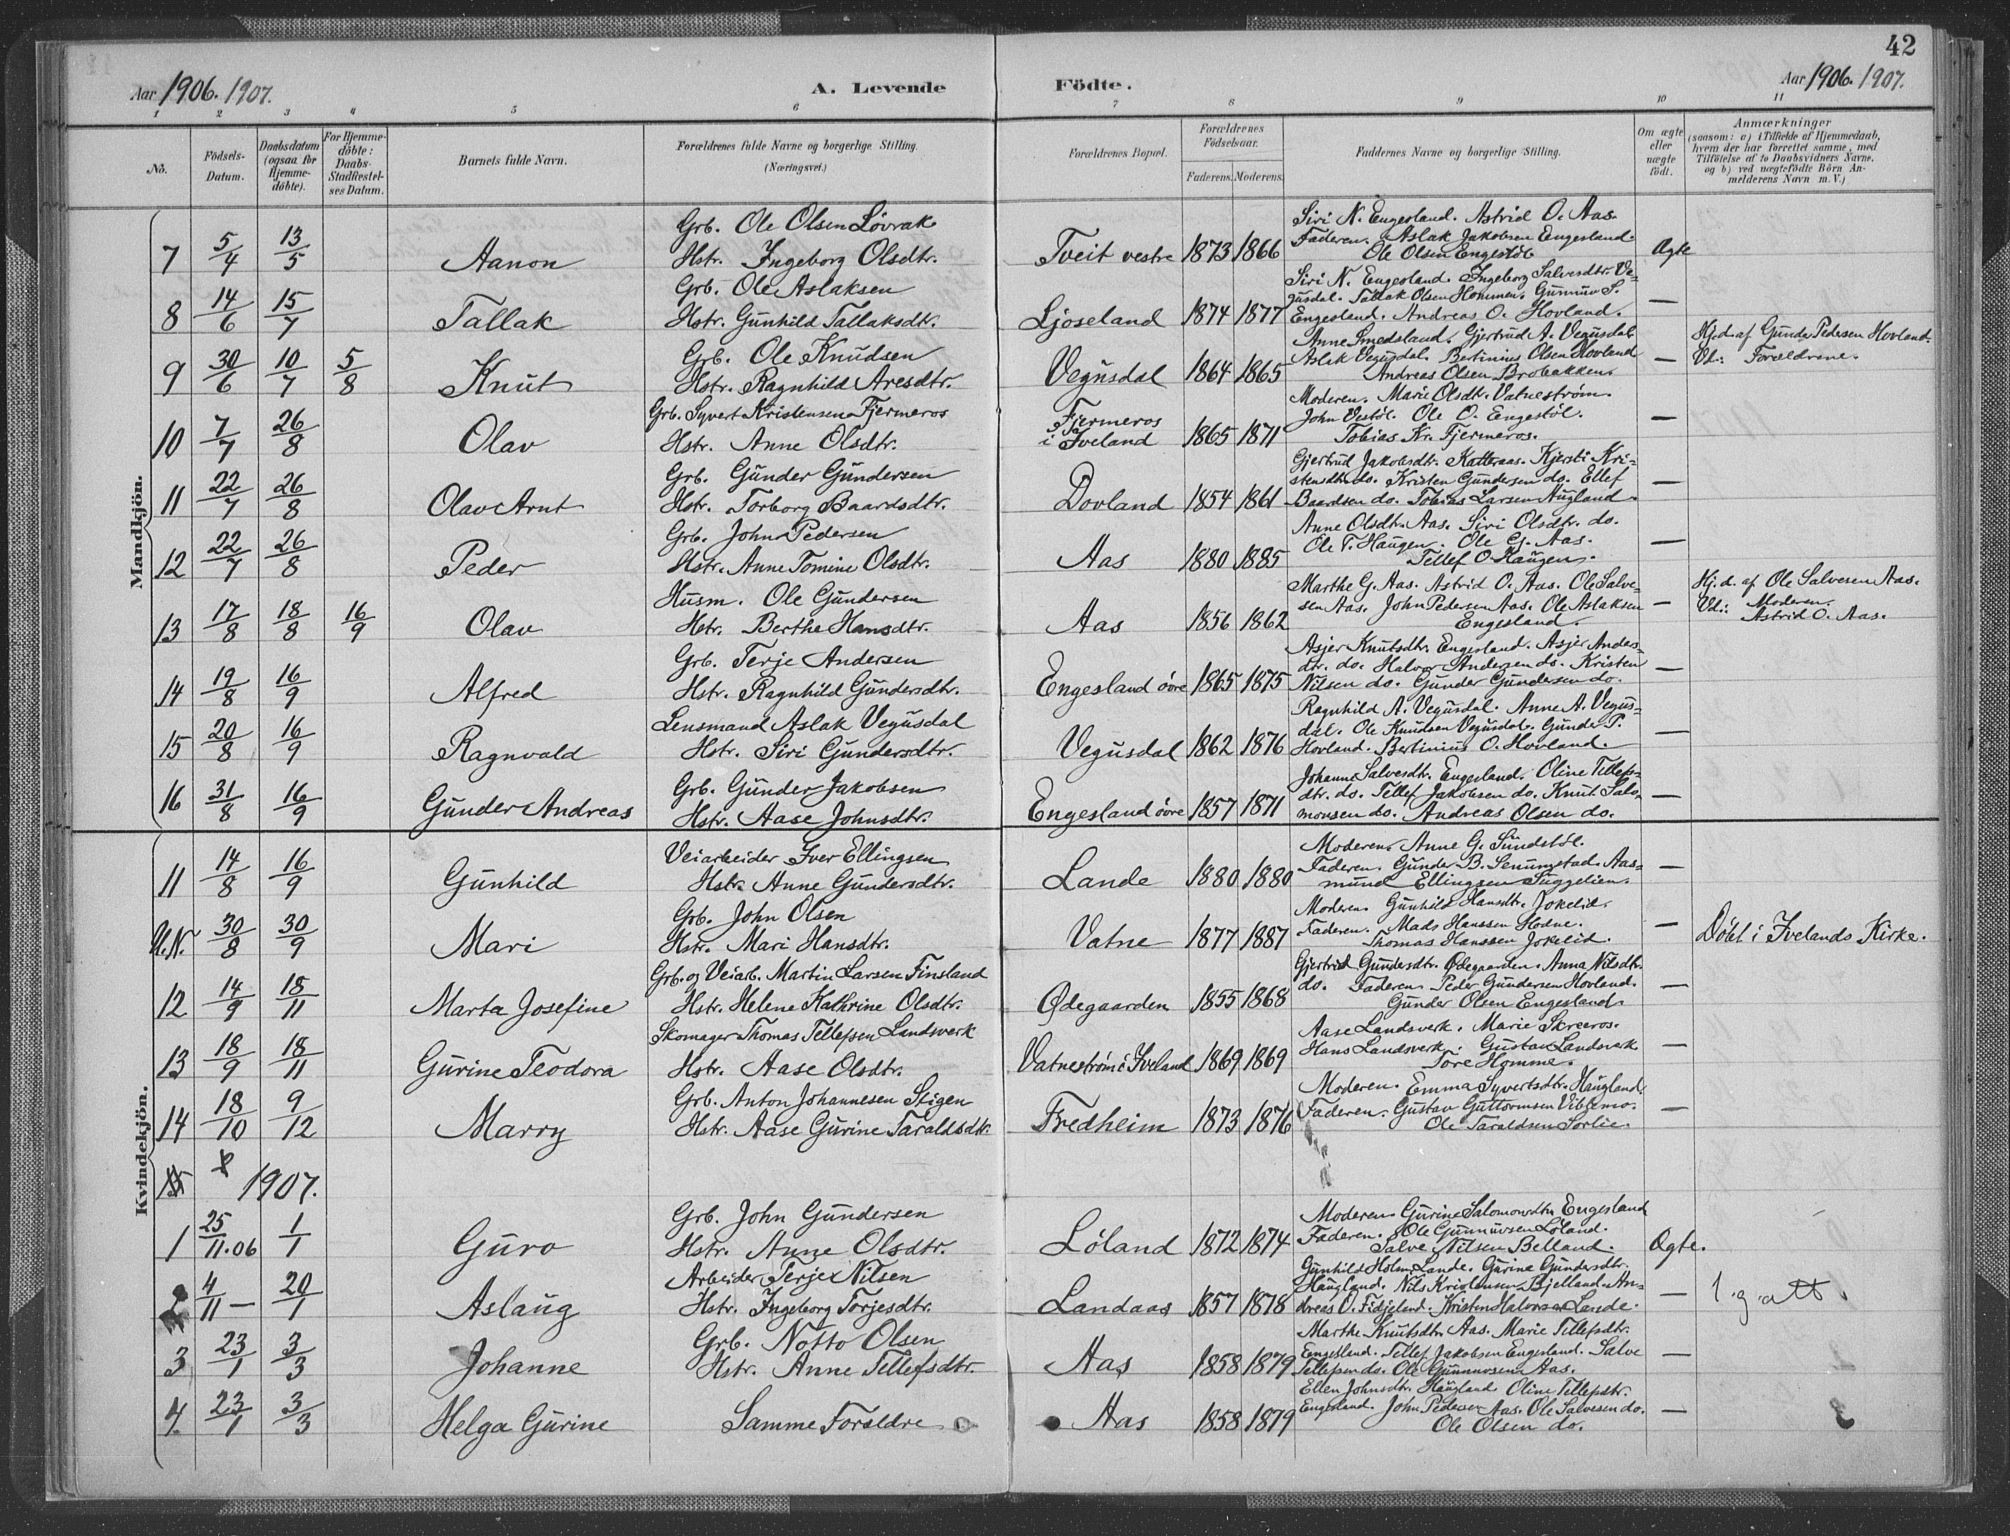 42
Aar 1906. 1907.
A. Levende Födte.
Aar 1906. 1907.
1 2 3 4 5 6 7 8 9 10 11
No.
Födsels-Datum.
Daabsdatum (ogsaa for Hjemme-döbte).
For Hjemme-döbte: Daabs-Stadfæstel-ses Datum.
Barnets fulde Navn.
Forældrenes fulde Navne og borgerlige Stilling. (Næringsvei.)
Forældrenes Bopæl.
Forældrenes Födselsaar.
Faderens. Moderens.
Faddernes Navne og borgerlige Stilling.
Om ægte eller uægte födt.
Anmærkninger
(saasom: a) i Tilfælde af Hjemmedaab, hvem der har forrettet samme, med Tilföielse af to Daabsvidners Navne, og b) ved uægtefödte Börn An-melderens Navn m. V.)
Mandkjön.
7 5/4 13/5 Aanon
Grb. Ole Olsen Løvrak
Hstr. Ingeborg Olsdtr.
Tveit vestre 1873 1866
Siri N. Engesland. Astrid O. Aas.
Faderen. Aslak Jakobsen Engesland.
Ole Olsen Engestøl
Ægte
8 14/6 15/7 Tallak
Grb. Ole Aslaksen
Hstr. Gunhild Tallaksdtr.
Ljoseland 1874 1877
Siri N. Engesland. Ingeborg Salvesdtr. Ve-
gusdal. Tallak Olsen Hommen. Gunnuv S.
Engesland. Andreas O. Hovland.
—
9 30/6 10/7 5/8 Knut
Grb. Ole Knudsen
Hstr. Ragnhild Aresdtr.
Vegusdal 1864 1865
Anne Smedsland. Gjertrud A. Vegusdal.
Aslak Vegusdal. Bertinius Olsen Hovland
Andreas Olsen Brobakken.
—
Hj.d. af Gunde Pedersen Hovland.
Vd.: Forældrene.
10 7/7 26/8 Olav
Grb. Syvert Kristensen Fjermeros
Hstr. Anne Olsdtr.
Fjermeros
i Iveland 1865 1871
Moderen. Marie Olsdtr. Vatnestrøm.
John Vestøl. Ole O. Engestøl.
Tobias Kr. Fjermeros.
—
11 22/7 26/8 Olav Arnt
Grb. Gunder Gundersen
Hstr. Torborg Baardsdtr.
Dovland 1854 1861
Gjertrud Jakobsdtr. Katteraas. Kjersti Kri-
stensdtr. do. Kristen Gundersen do. Ellef
Baardsen do. Tobias Larsen Augland.
—
12 22/7 26/8 Peder
Grb. John Pedersen
Hstr. Anne Tomine Olsdtr.
Aas 1880 1885
Anne Olsdtr. Aas. Siri Olsdtr. do.
Ole T. Haugen. Ole G. Aas.
Tellef O. Haugen.
—
13 17/8 18/8 16/9 Olav
Husm. Ole Gundersen
Hstr. Berthe Hansdtr.
Aas 1856 1862
Marthe G. Aas. Astrid O. Aas. Ole Salve-
sen Aas. John Pedersen Aas. Ole Aslaksen
Engesland.
—
Hj.d. af Ole Salvesen Aas.
Vd.: Moderen.
Astrid O. Aas.
14 19/8 16/9 Alfred
Grb. Terje Andersen
Hstr. Ragnhild Gundersdtr.
Engesland øvre 1865 1875
Asjer Knutsdtr. Engesland. Asjer Anders-
dtr. do. Halvor Andersen do. Kristen
Nilsen do. Gunder Gundersen do.
—
15 20/8 16/9 Ragnvald
Lensmand Aslak Vegusdal
Hstr. Siri Gundersdtr.
Vegusdal 1862 1876
Ragnhild A. Vegusdal. Anne A. Vegus-
dal. Ole Knudsen Vegusdal. Gunde P.
Hovland. Bertinius O. Hovland.
—
16 31/8 16/9 Gunder Andreas
Grb. Gunder Jakobsen
Hstr. Aase Johnsdtr.
Engesland øvre 1857 1871
Johanne Salvesdtr. Engesland. Oline Tellefs-
dtr. do. Tellef Jakobsen do. Knut Salo-
monsen do. Andreas Olsen do.
—
Kvindekjön.
11 14/8 16/9 Gunhild
Veiarbeider Iver Ellingsen
Hstr. Anne Gundersdtr.
Lande 1880 1880
Moderen. Anne G. Sundstøl.
Faderen. Gunder B. Senumstad. Aas-
mund Ellingsen Tuggelien.
—
U.N. 30/8 30/9 Mari
Grb. John Olsen
Hstr. Mari Hansdtr.
Vatne 1877 1887
Moderen. Gunhild Hansdtr. Jokelid.
Faderen. Mads Hanssen Hodne.
Thomas Hanssen Jokelid.
—
Døbt i Ivelands Kirke.
12 14/9 18/11 Marta Josefine
Grb. og Veiarb. Martin Larsen Finsland
Hstr. Helene Kathrine Olsdtr.
Ødegaarden 1855 1868
Gjertrid Gundersdtr. Ødegaarden. Anna Nilsdtr.
do. Faderen. Peder Gundersen Hovland.
Gunder Olsen Engesland.
—
13 18/9 18/11 Gurine Teodora
Skomager Thomas Tellefsen Landsverk
Hstr. Aase Olsdtr.
Vatnestrøm i Iveland 1869 1869
Aase Landsverk. Marie Skreeros.
Hans Landsverk. Gustav Landsverk
Tore Homme.
—
14 18/10 9/12 Marry
Grb. Anton Johannesen Stigen
Hstr. Aase Gurine Taraldsdtr.
Fredheim 1873 1876
Moderen. Emma Syvertsdtr. Haugland.
Faderen. Gustav Guttormsen Vibbemo.
Ole Taraldsen Sorlie.
—
1907.
1 25/11.06 1/1 Guro
Grb. John Gundersen
Hstr. Anne Olsdtr.
Løland 1872 1874
Moderen. Gurine Salomonsdtr. Engesland
Faderen. Ole Gunnuvsen Løland.
Salve Nilsen Belland.
Ægte.
2 4/11 — 20/1 Aslaug
Arbeider Terje Nilsen
Hstr. Ingeborg Torjesdtr.
Landaas 1857 1878
Gunhild Holm Lande. Gurine Gundersdtr.
Haugland. Nils Kristensen Bjelland. An-
dreas O. Fidjeland. Kristen Halvorsen Lande.
—
1. g. att.
3 23/1 3/3 Johanne
Grb. Notto Olsen
Hstr. Anne Tellefsdtr.
Aas 1858 1879
Marthe Knutsdtr. Aas. Marie Tellefsdtr.
Engesland. Tellef Jakobsen Engesland. Salve
Tellefsen do. Ole Gunnuvsen Aas.
—
4. 23/1 3/3 Helga Gurine
Samme Forældre
Aas 1858 1879
Ellen Johnsdtr. Haugland. Oline Tellefsdtr.
Engesland. John Pedersen Aas. Ole Salvesen do.
Ole Olsen do.
—